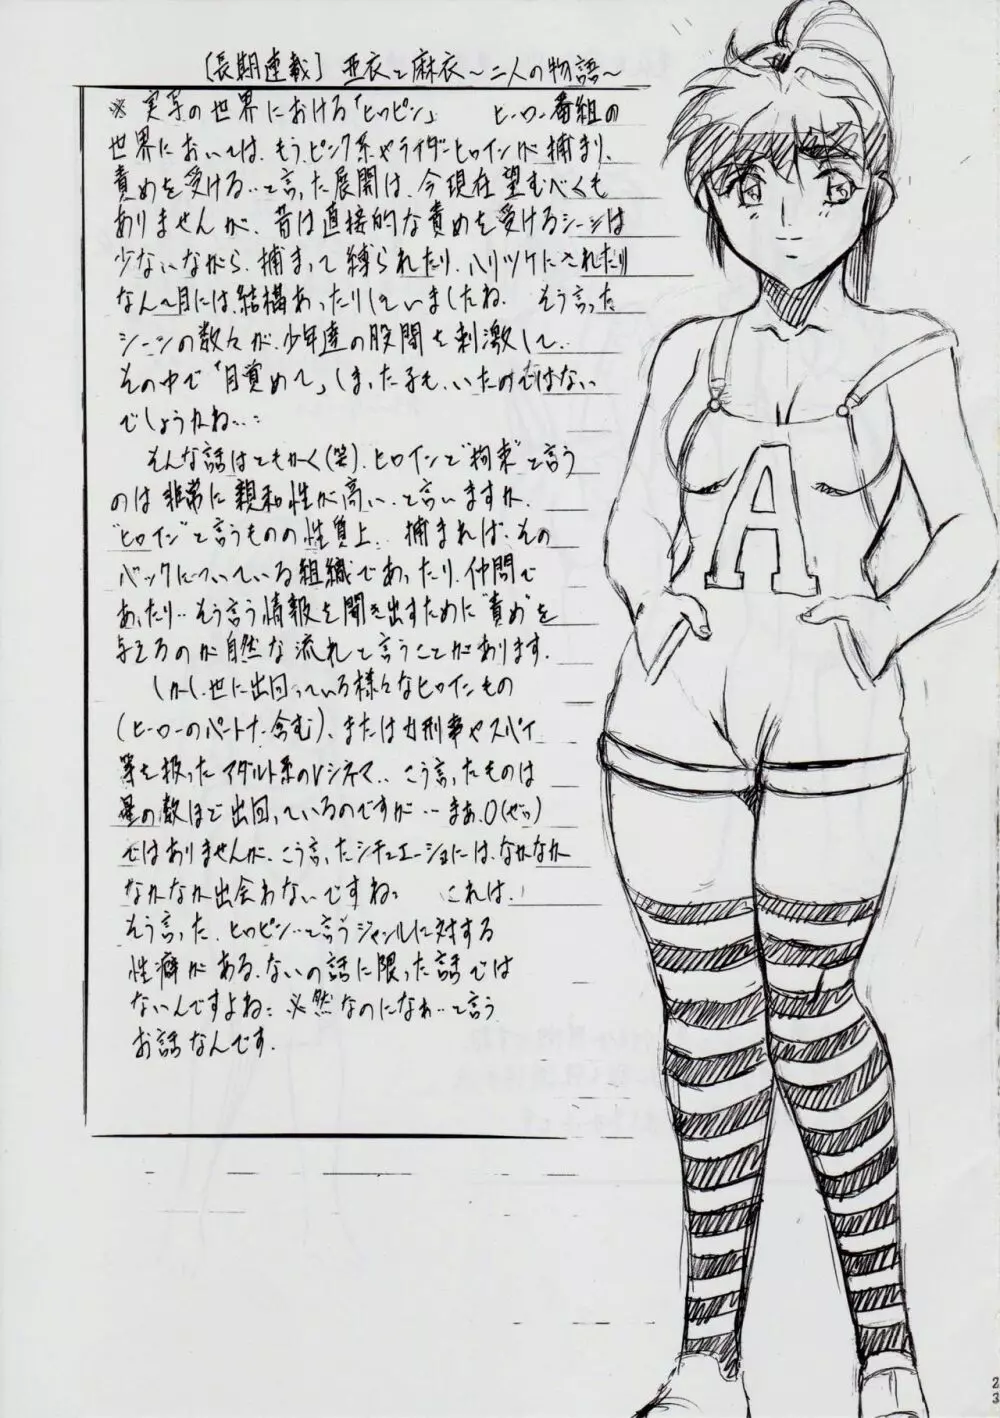 [長期連載] 亜衣と麻衣～二人の物語～
※ 実写の世界における「ヒロピン」 ヒーロー番組の
世界においては、もう、ピンク系やライダーヒロインが捕まり、
責めを受ける‥と言った展開は、今現在望むべくも
ありませんが、昔は直接的な責めを受けるシーンは
少ないながら、捕まって縛られたり、ハリツケにされたり
なん～目には、結構あったりしていましたね。 そう言った
シーンの数々が、少年達の股間を刺激して‥
その中で「目覚めて」しまった子も、いたのではない
でしょうかね‥:
そんな話はともかく(笑)、ヒロインで“拘束”と言う
のは非常に親和性が高い、と言いますか、
“ヒロイン”と言うものの性質上‥ 捕まれば、その
バックについている組織であったり、仲間で
あったり‥そう言う情報を聞き出すために“責め”を
与えるのが自然な流れと言うことがあります。
しかし、世に出回っている様々なヒロインもの
(ヒーローのパートナー含む)、または女刑事やスパイ
等を扱ったアダルト系のVシネマ‥ こう言ったものは
星の数ほど出回っているのですが‥まぁ、0(ゼロ)
ではありませんが、こう言ったシチュエーションには、なかなか
なかなか出会わないですね: これは、
そう言った、ヒロピン‥と言うジャンルに対する
性癖がある、ないの話に限った話では
ないんですよね: 必然なのになぁ‥と言う
お話なんです。
A
23